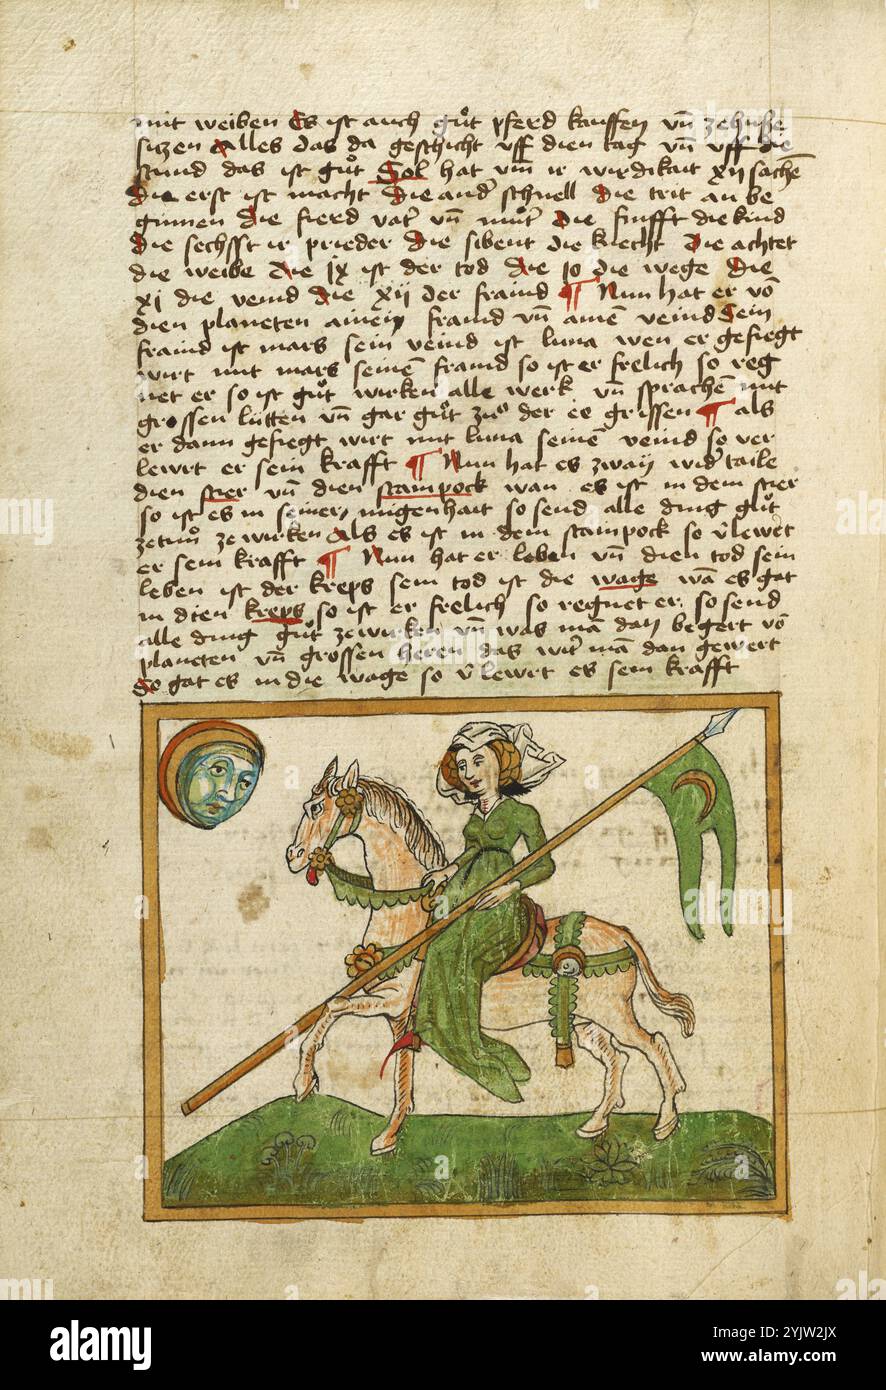 mit weiben Es ist auch gůt pferd kauffen vn̄ ze huse
sitzen Alles das da geschicht vff dien tag vn̄ vff die
stund das ist gůt Sol hat vm̄ ir wirdikait xij sachē
Die erst ist macht Die ander schnell die trit an be
ginnen Die fierd vater vn̄ muter Die funfft die kind
Die sechsst ir prieder Die sibent die knecht Die achtet
die weibe Die ix ist der tod die jo die wege Die
xj die veind die xij der fraind ¶ Nun hat er vō
dien planeten ainen fraind vn̄ ainē veind Sein
fraind ist mars sein veind ist luna wen er gefiegt
wirt mit mars seinē fraind so ist er frelich so reg
net er so ist gůt wirken alle werk vn̄ sprachen mit
grossen lütten vn̄ gar gůt zuͦ der er grissen ¶ als
er dann gefiegt wirt mit luna seinē veind so ver
lewrt er sein krafft ¶ Nun hat es zwaij wider taile
dien stier vn̄ dien stainpock wan es ist in dem stier
so ist es in seiner mugenhait so send alle ding gůt
zetuͦn ze wurken Als es ist in dem stainpock so v̄lewrt
er sein krafft ¶ Nun hat er leben vn̄ dien tod sein
leben ist der kreps sein tod ist die wage wā es gat
in dien kreps so ist er frelich so regnet er so send
alle ding gůt ze wurken vn̄ was mā dan begert vō
planeten vn̄ grossen heren das wirt mā dan gewert
So gat es in die wage so v̄lewrt es sein krafft
alamy
Image ID: 2YJW2JX
www.alamy.com